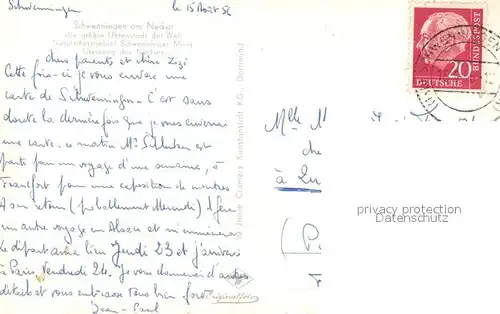 Schwenningen le 15 Août 56
Schwenningen am Neckar
die größte Uhrenstadt der Welt
Naturschutzgebiet Schwenninger Moos
Ursprung des Neckars
Chers parents et chère Zizi
Cette fois-ci je vous envoie une
carte de Schwenningen. C'est sans
doute la dernière fois que je vous enverrai
une carte. Ce matin Mr. est
parti pour un voyage d'une semaine, à
Francfort pour une exposition de montres
A son retour (probablement Mercredi) il fera
un autre voyage en Alsace et m'emmènera
Le départ aura lieu Jeudi 23 et j'arriverai
à Paris, Vendredi 24. Je vous donnerai d'autres
détails et vous embrasse tous bien fort
Jean-Paul
30 Jahre Cramers Kunstanstalt KG., Dortmund
Originalfoto
Mlle M
che
à
(P
20
DEUTSCHE
BUNDESPOST
personenbezogene Daten
Datenschutz